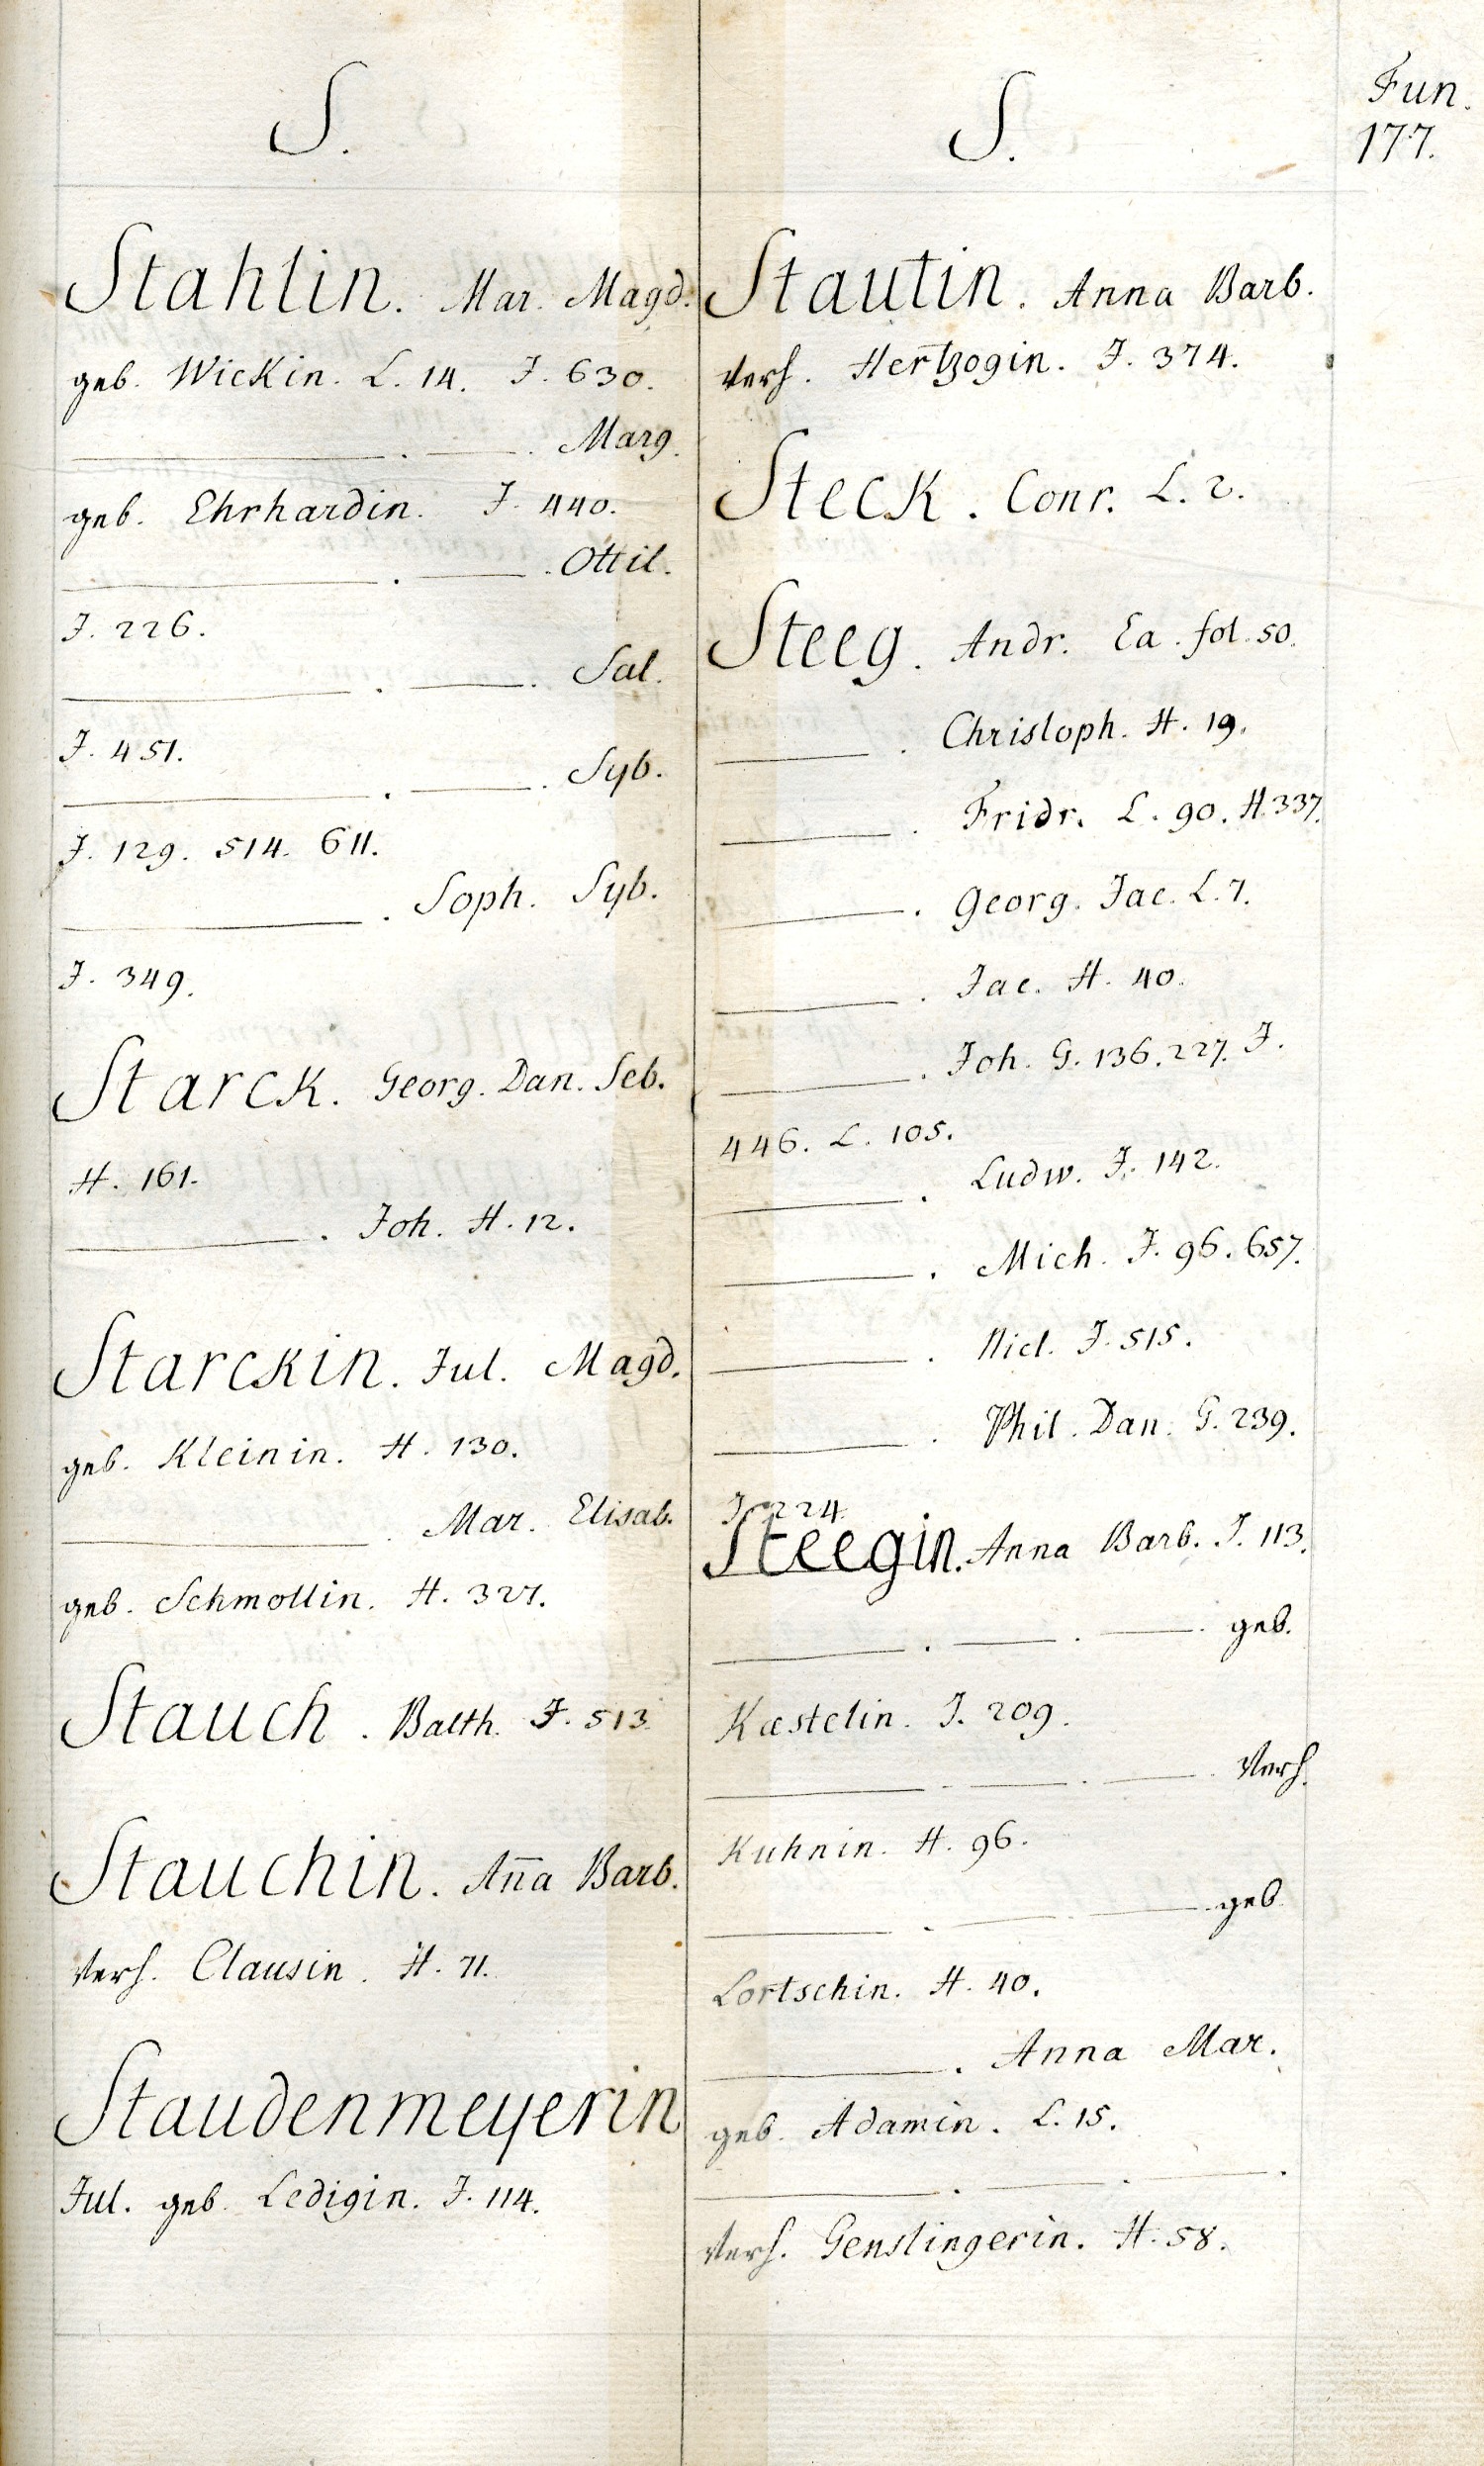 S.
Stahlin. Mar. Magd.
geb. Wickin. L. 14. J. 630.
Marg.
geb. Ehrhardin. J. 440.
Ottil.
J. 226.
Sal.
J. 451.
Syb.
J. 129. 514. 611.
Soph. Syb.
J. 349.
Starck. Georg. Dan. Seb.
H. 161.
Joh. H. 12.
Starckin. Jul. Magd.
geb. Kleinin. H. 130.
Mar. Elisab.
geb. Schmollin. H. 327.
Stauch. Balth. J. 513.
Stauchin. Aña Barb.
verh. Clausin. H. 71.
Staudenmeyerin
Jul. geb. Ledigin. J. 114.
S.
Stautin. Anna Barb.
verh. Hertzogin. J. 374.
Steck. Conr. L. 2.
Steeg. Andr. Ea. fol. 50.
Christoph. H. 19.
Fridr. L. 90. H. 337.
Georg. Jac. L. 7.
Jac. H. 40.
Joh. G. 136. 227. J.
446. L. 105.
Ludw. J. 142.
Mich. J. 96. 657.
Nicl. J. 515.
Phil. Dan. G. 239.
J. 224.
Steegin. Anna Barb. J. 113.
geb.
Kæstelin. J. 209.
verh.
Kuhnin. H. 96.
geb.
Lortschin. H. 40.
Anna Mar.
geb. Adamin. L. 15.
verh. Genslingerin. H. 58.
Fun.
177.